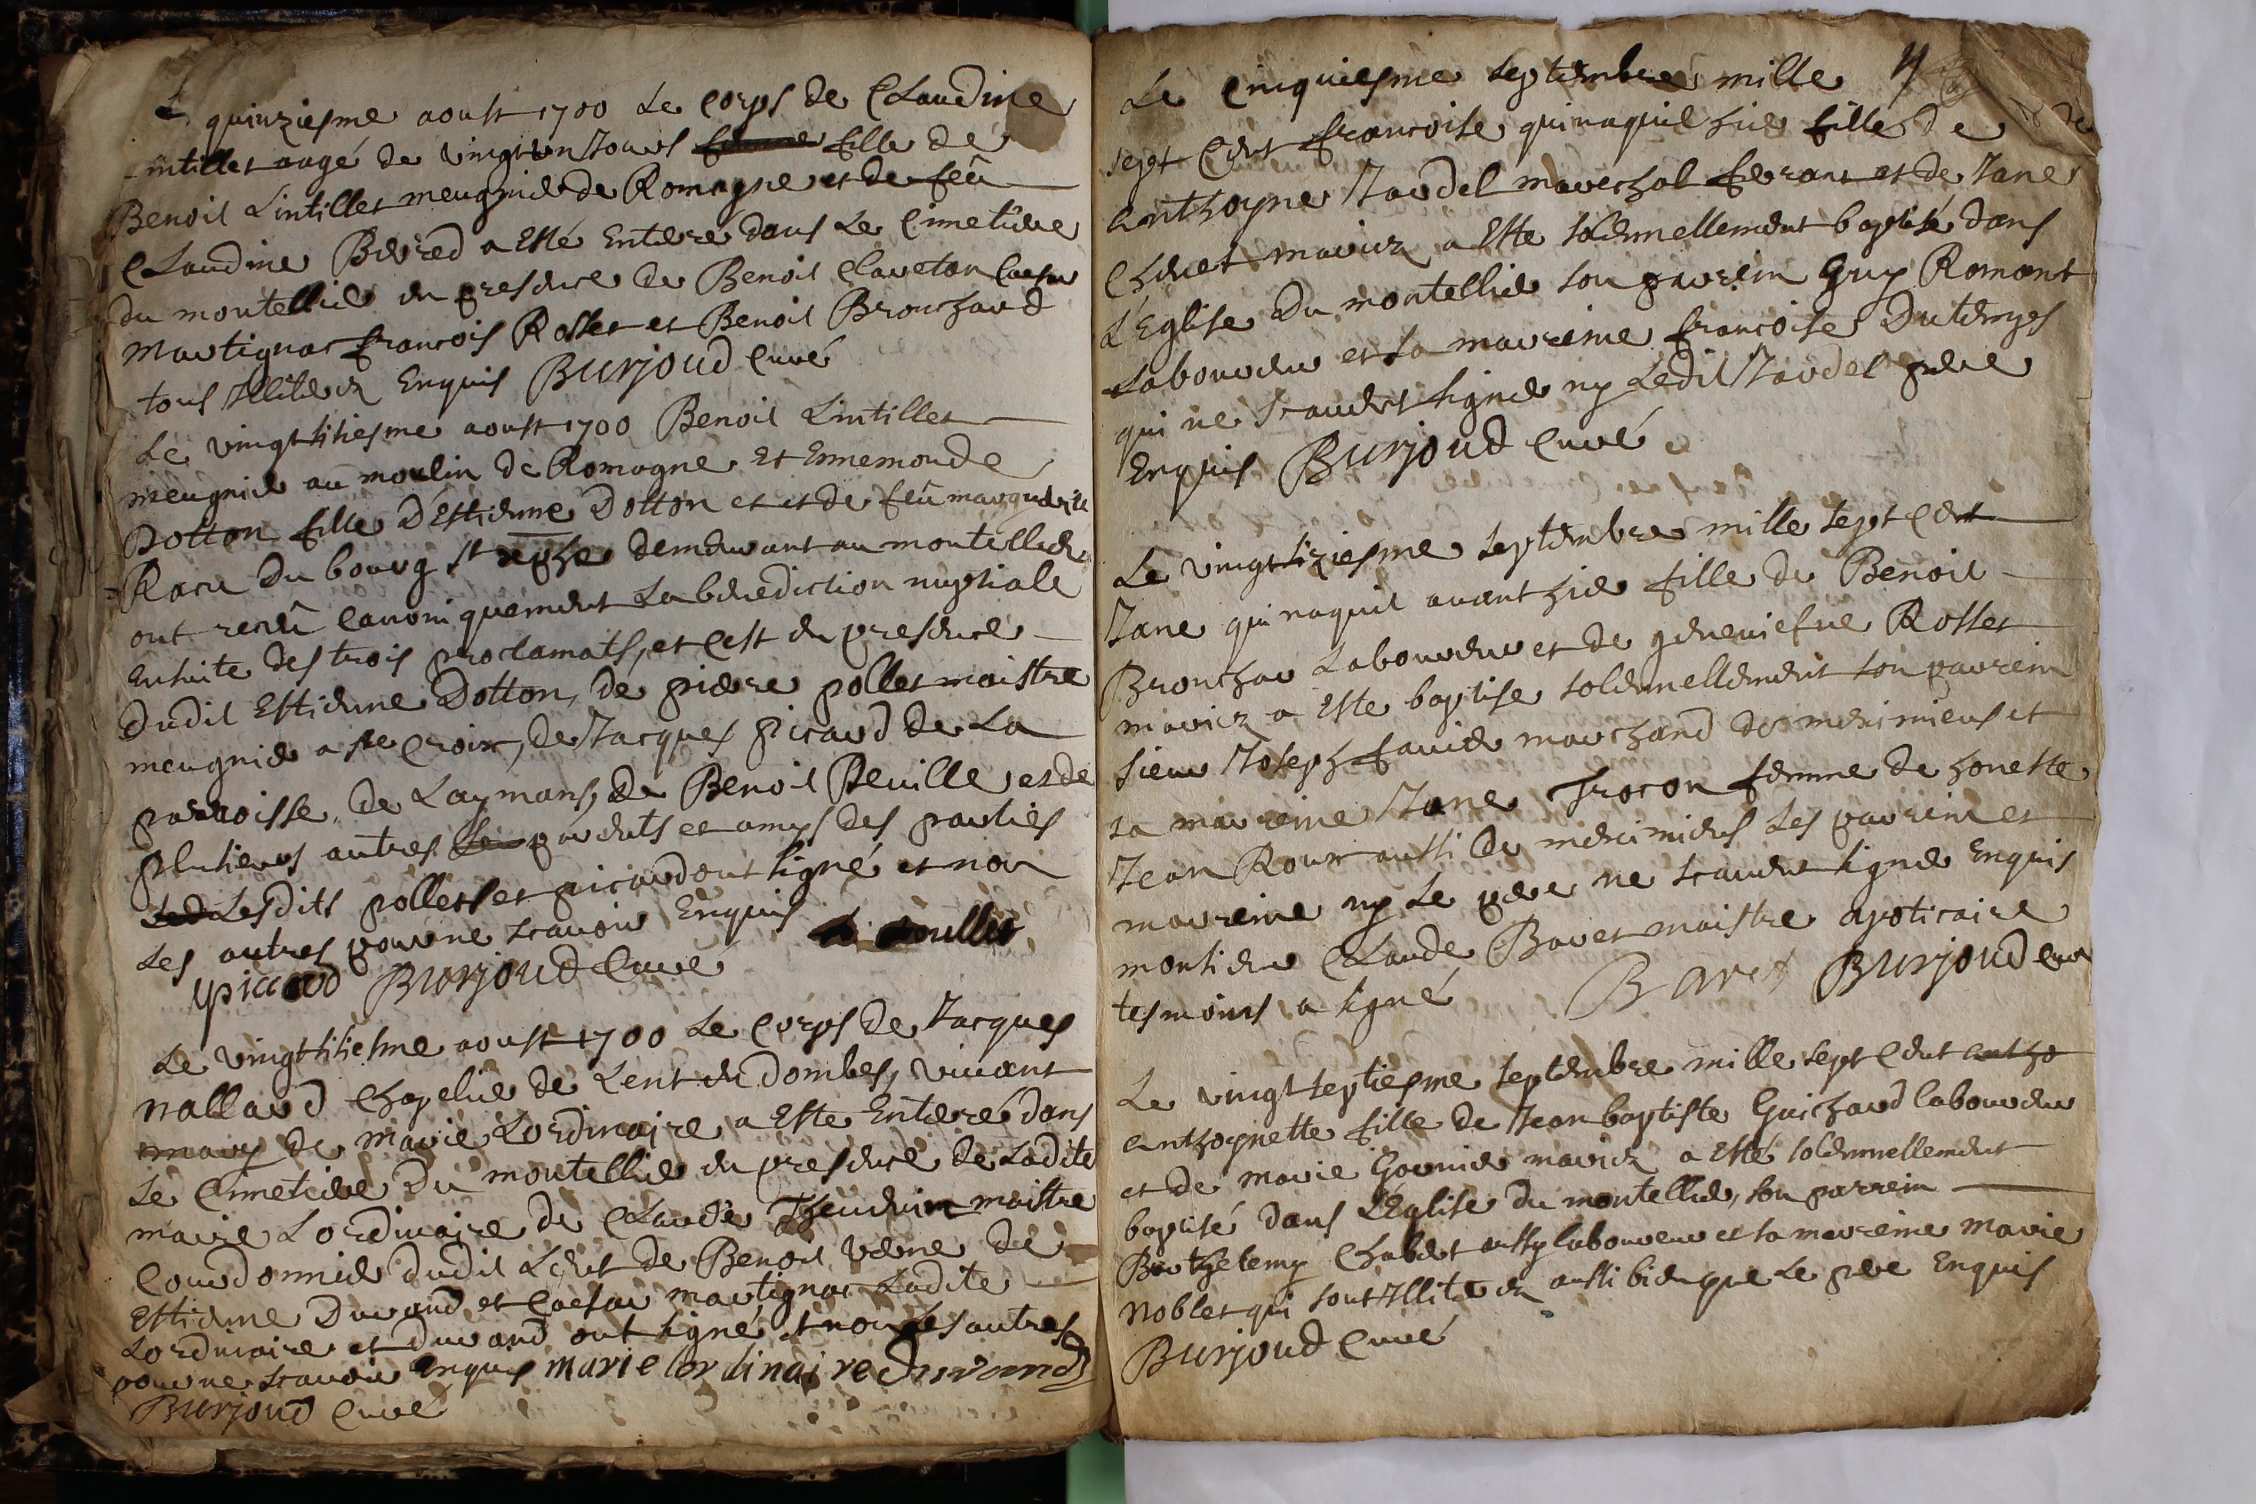 Le quinziesme aoust 1700 Le Corps de Claudine
Lintillet aagé de vingt un Jours femme fille de
Benoit Lintillet meugnier de Romagne et de feû
Claudine Berred a Esté Enterré dans Le Cimetiere
du montellier en presence de Benoit Claveton Caesar
Martignac francois Rosset et Benoit Bronchard
tous Illiterez Enquis Burjoud Curé
Le vingt sisiesme aoust 1700 Benoit Lintillet
meugnier au moulin de Romagne et Ennemonde
Dotton fille d'Estienne Dotton et et de feû marguerite
Race du bourg st demeurant au montellier
ont receû canoniquement La benediction nuptiale
Ensuite des trois proclamats, et c'est en presence
dudit Estienne Dotton, de pierre pollet maistre
meugnier a ste Croix, de Jacques picard de La
parroisse de Laymans, de Benoit Reuille et de
plusieurs autres parents et amys des parties
Led Lesdits pollet et picard ont signé et non
Les autres pour ne scavoir Enquis
picard Burjoud Curé
Le vingt sisiesme aoust 1700 Le Corps de Jacques
Nallard Chapelier de Lent en dombes, vivant
mary de marie Lordinaire a Esté Enterré dans
Le Cimetiere du montellier en presence de Ladite
marie Lordinaire de Claude maistre
Courdonnier dudit Lent de Benoit verne de
Estienne Durand et Caesar martignac Ladite
Lordinaire et durand ont signé et non Les autres
pour ne scavoir enquis marie lordinaire Durand
Burjoud Curé
Le Cinquiesme septembre mille
sept Cent francoise qui naquit hier fille de
Anthoyne Jardel mareschal ferrant et de Jane
Chenet mariez a Esté solennellement baptisé dans
L'Eglise du montellier son parrein Guy Romant
Laboureur et sa marreine francoise Dutemps
qui ne scavent signer ny Ledit Jardel pere
Enquis Burjoud Curé
Le vingt sixiesme septembre mille sept Cent
Jane qui naquit avant hier fille de Benoit
Bronchar Laboureur et de geneviefve Rosset
mariez a Esté baptisé solennellement son parrein
sieur Joseph favier marchand de meximieux et
sa marreine Jane Trocon femme de honeste
Jean Roux aussi de meximieux Les parrein et
marreine ny Le pere ne scavent signer Enquis
monsieur Claude Baret maistre apoticaire
tesmoins a signé Baret Burjoud Curé
Le vingt septiesme septembre mille sept Cent antho
Anthoynette fille de Jean baptiste Guichard laboureur
et de marie Gounier mariez a Esté solennellement
baptisé dans L'Eglise du montellier, son parrein
Barthelemy Chabert aussy laboureur et sa marreine Marie
Noblet qui sont Illiterez aussi bien que Le pere Enquis
Burjoud Curé